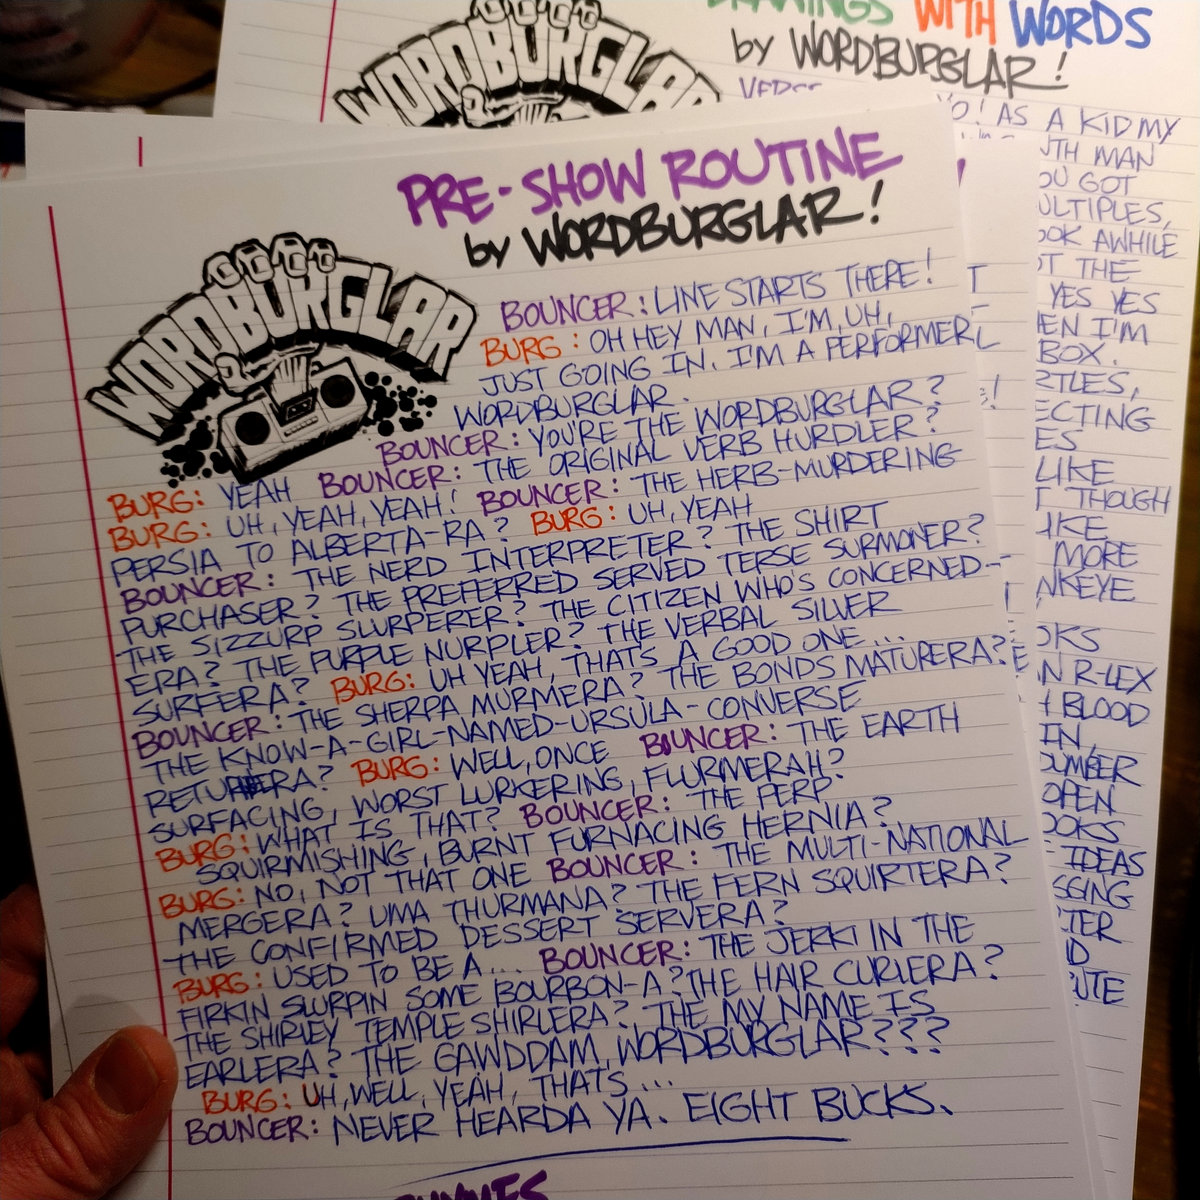 DRAWINGS WITH WORDS
by WORDBURGLAR!
WORDBURGLAR
YO! AS A KID MY
PRE-SHOW ROUTINE
by WORDBURGLAR!
WORDBURGLAR
BOUNCER: LINE STARTS THERE!
BURG: OH HEY MAN, I'M, UH,
JUST GOING IN. I'M A PERFORMER
WORDBURGLAR.
BOUNCER: YOU'RE THE WORDBURGLAR?
BURG: YEAH BOUNCER: THE ORIGINAL VERB HURDLER?
BURG: UH, YEAH, YEAH! BOUNCER: THE HERB-MURDERING
PERSIA TO ALBERTA-RA? BURG: UH, YEAH
BOUNCER: THE NERD INTERPRETER? THE SHIRT
PURCHASER? THE PREFERRED SERVED TERSE SURMONER?
THE SIZZURP SLURPERER? THE CITIZEN WHO'S CONCERNED-
ERA? THE PURPLE NURPLER? THE VERBAL SILVER
SURFERA? BURG: UH YEAH, THAT'S A GOOD ONE...
BOUNCER: THE SHERPA MURMERA? THE BONDS MATURERA?
THE KNOW-A-GIRL-NAMED-URSULA-CONVERSE
RETURERA? BURG: WELL, ONCE BOUNCER: THE EARTH
SURFACING, WORST LURKERING, FLURMERAH?
BURG: WHAT IS THAT? BOUNCER: THE PERP
SQUIRMISHING, BURNT FURNACING HERNIA?
BURG: NO, NOT THAT ONE BOUNCER: THE MULTI-NATIONAL
MERGERA? UMA THURMANA? THE FERN SQUIRTERA?
THE CONFIRMED DESSERT SERVERA?
BURG: USED TO BE A... BOUNCER: THE JERK IN THE
FIRKIN SLURPIN SOME BOURBON-A? THE HAIR CURLERA?
THE SHIRLEY TEMPLE SHIRLERA? THE MY NAME IS
EARLERA? THE GAWDDAM, WORDBURGLAR???
BURG: UH, WELL, YEAH, THATS...
BOUNCER: NEVER HEARDA YA. EIGHT BUCKS.
UTH MAN
OU GOT
ULTIPLES,
OOK AWHILE
OT THE
YES YES
EN I'M
BOX.
RTLES,
ECTING
ES
LIKE
T THOUGH
IKE
MORE
WKEYE
OKS
N R-LEX
BLOOD
IN,
UMBER
OPEN
OOKS
IDEAS
GGING
TER
D
UTE